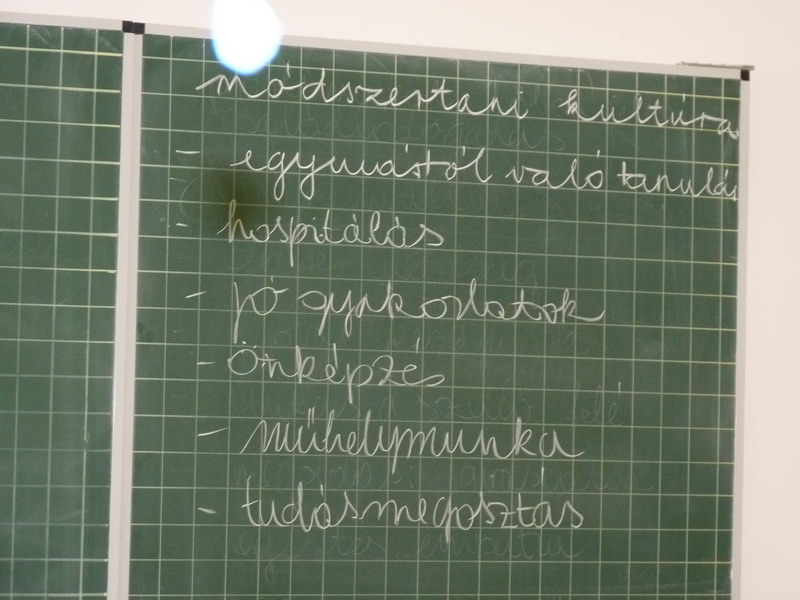 módszertani kultúra
- egymástól való tanulás
- hospitálás
- jó gyakorlatok
- Önképzés
- műhelymunka
- tudásmegosztás